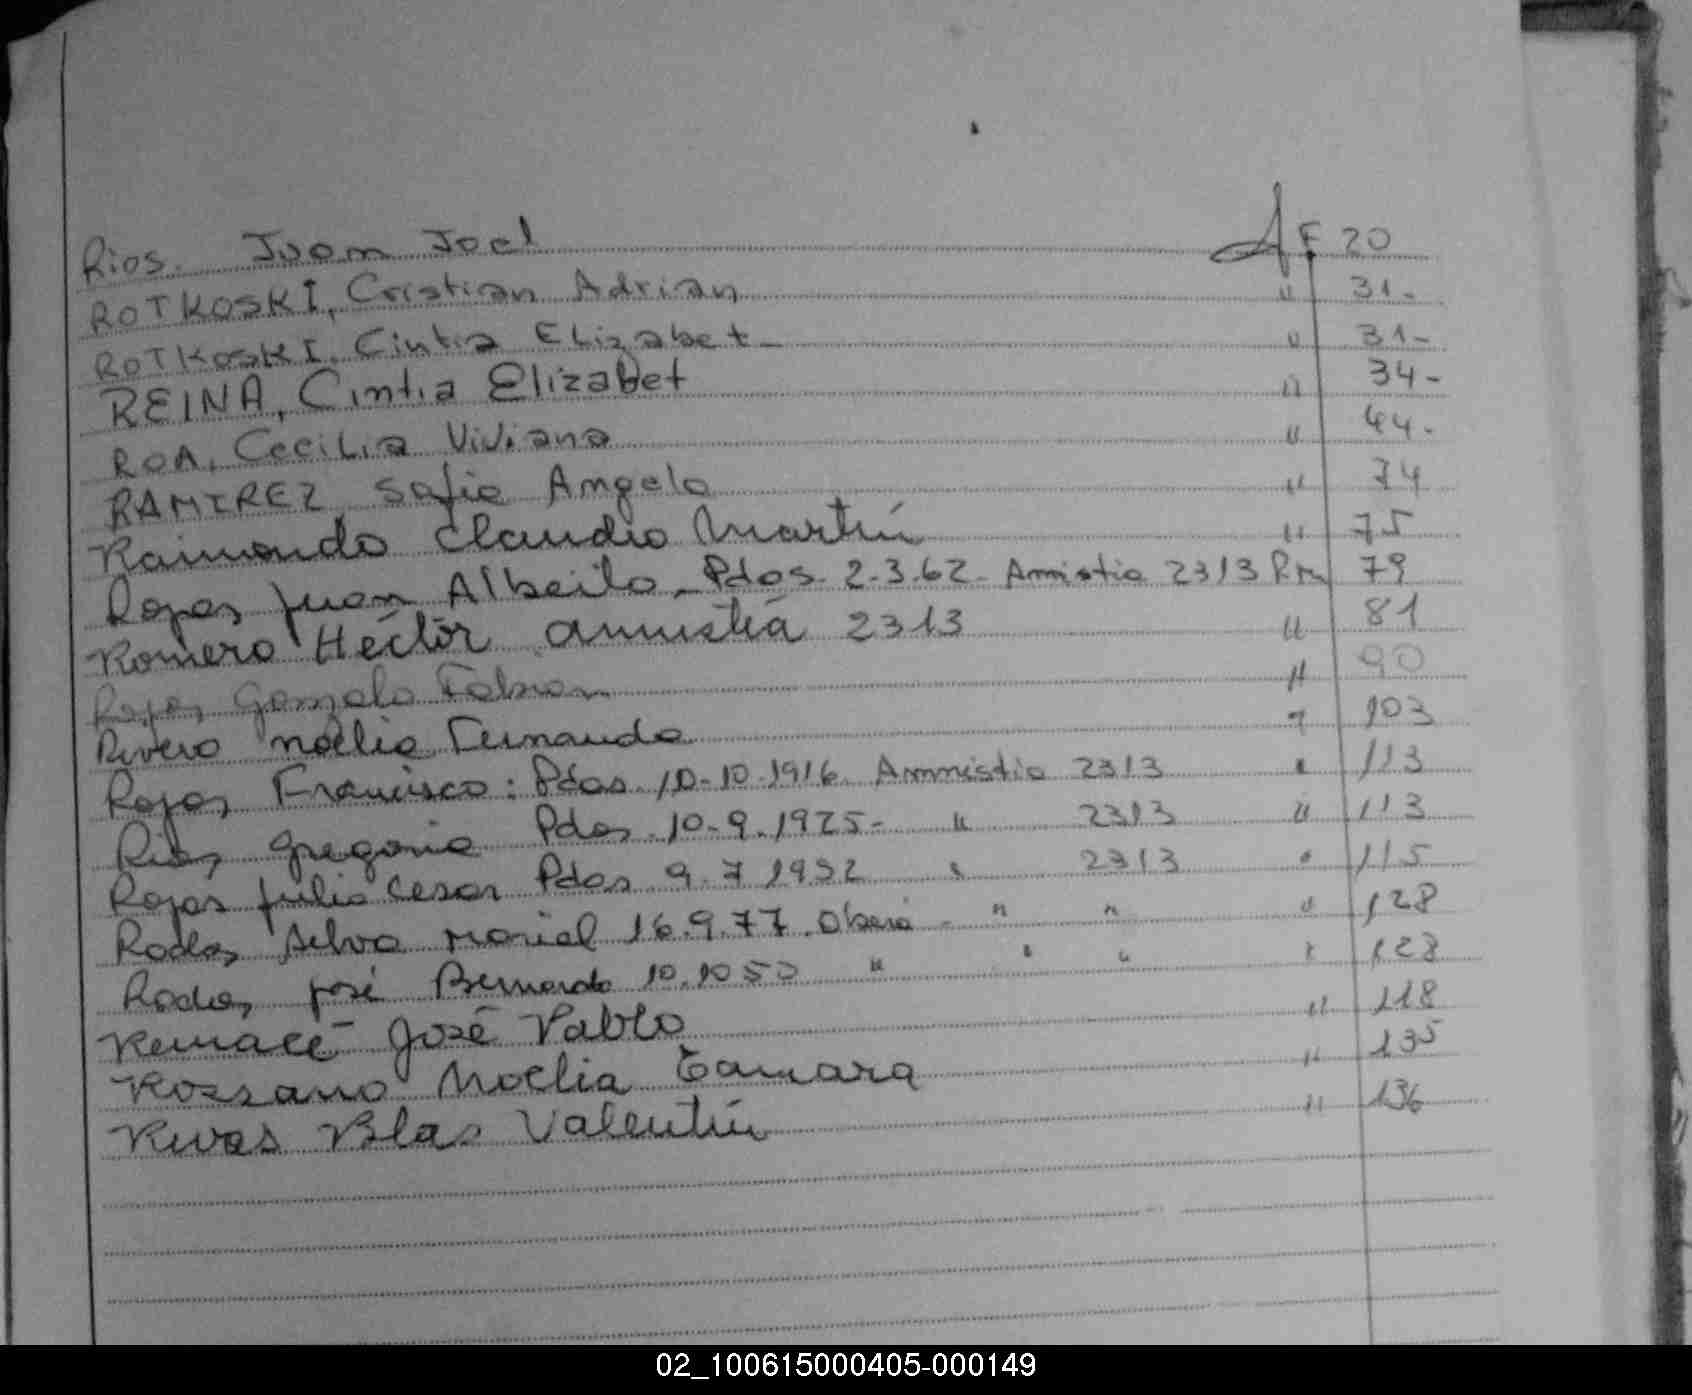 Rios. Juan Joel A F 20
ROTKOSKI, Cristian Adrian " 31-
ROTKOSKI, Cintia Elizabet - " 31-
REINA, Cintia Elizabet " 34-
ROA, Cecilia Viviana " 44-
RAMIREZ Sofia Angela " 74
Raimondo Claudio Martín " 75
Rojas Juan Alberto - Pdas. 2.3.62 - Amistia 2313 79
Romero Héctor amnistía 2313 " 81
Rojas Gonzalo Fabian " 90
Rivero Noelia Fernanda " 103
Rojas Francisco: Pdas. 10-10-1916 Amnistia 2313 " 113
Rios Gregorio Pdas 10-9-1925- " 2313 " 113
Rojas Julio Cesar Pdas 9.7.1932 " 2313 " 115
Roda, Selva Mariel 16.9.77. Oberá - " " " 128
Roda, José Bernardo 10.10 50 " " " " 128
José Pablo " 118
Rossano Noelia Tamara " 135
Rivas Blas Valentín " 136
02_100615000405-000149